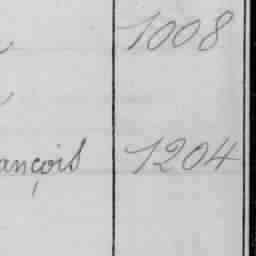 1008
ançois 1204